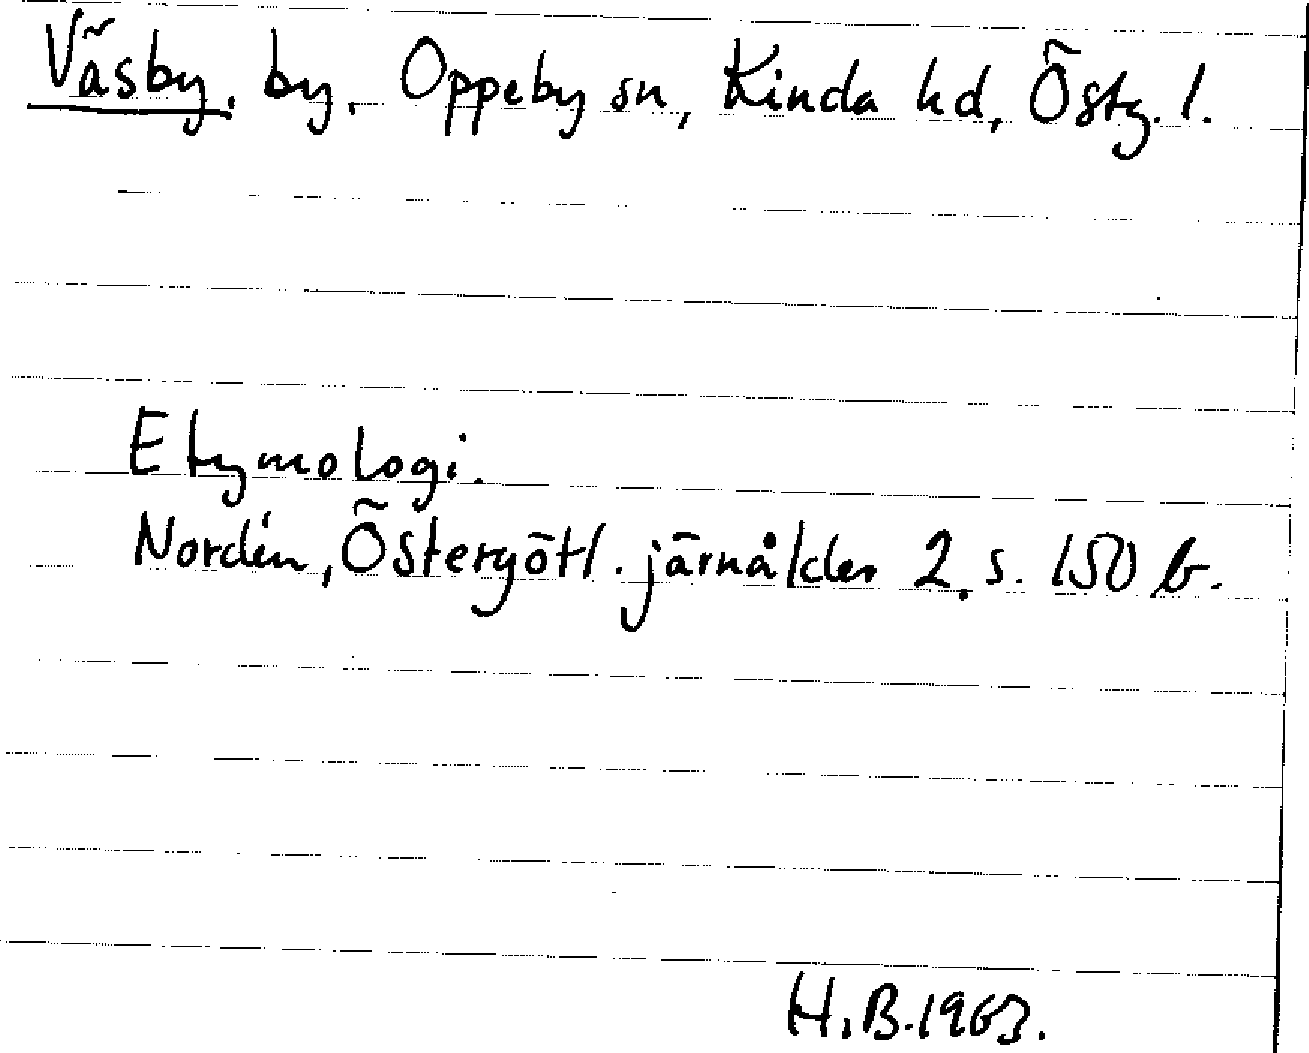 Väsby. by. Oppeby sn, Kinda hd, Östg. l.
Etymologi.
Nordén, Östergötl. järnålder 2. s. 150 b.
H.B. 1963.